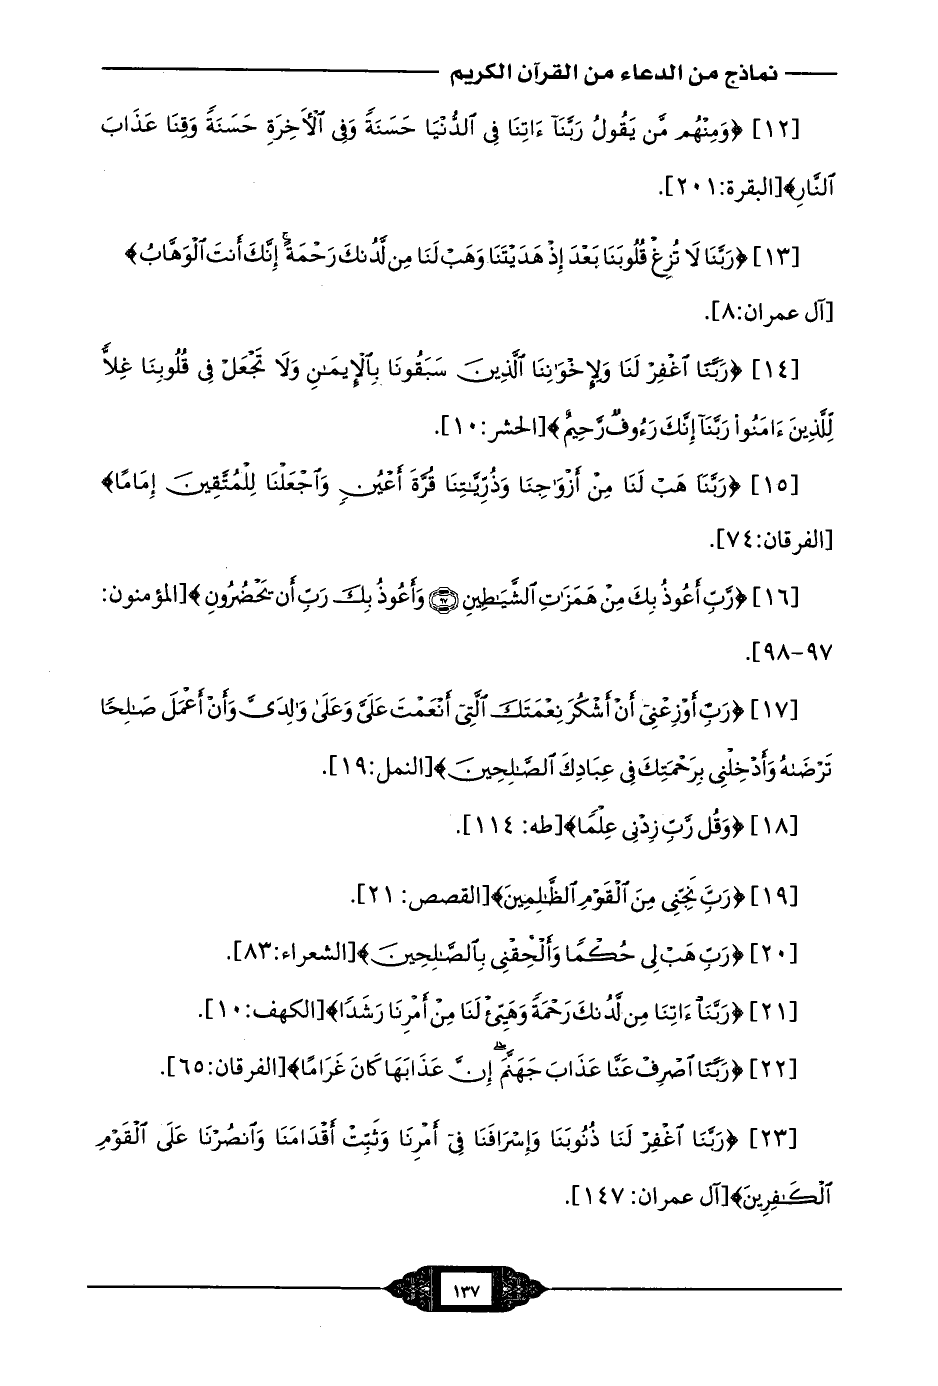 نماذج من الدعاء من القرآن الكريم
[١٢] ﴿وَمِنْهُم مَّن يَقُولُ رَبَّنَآ ءَاتِنَا فِى ٱلدُّنْيَا حَسَنَةً وَفِى ٱلْأَخِرَةِ حَسَنَةً وَقِنَا عَذَابَ
ٱلنَّارِ﴾[البقرة:٢٠١].
[١٣] ﴿رَبَّنَا لَا تُزِغْ قُلُوبَنَا بَعْدَ إِذْ هَدَيْتَنَا وَهَبْ لَنَا مِن لَّدُنكَ رَحْمَةً ۚ إِنَّكَ أَنتَ ٱلْوَهَّابُ﴾
[آل عمران:٨].
[١٤] ﴿رَبَّنَا ٱغْفِرْ لَنَا وَلِإِخْوَٰنِنَا ٱلَّذِينَ سَبَقُونَا بِٱلْإِيمَٰنِ وَلَا تَجْعَلْ فِى قُلُوبِنَا غِلًّا
لِّلَّذِينَ ءَامَنُوا۟ رَبَّنَآ إِنَّكَ رَءُوفٌ رَّحِيمٌ﴾[الحشر:١٠].
[١٥] ﴿رَبَّنَا هَبْ لَنَا مِنْ أَزْوَٰجِنَا وَذُرِّيَّٰتِنَا قُرَّةَ أَعْيُنٍ وَٱجْعَلْنَا لِلْمُتَّقِينَ إِمَامًا﴾
[الفرقان:٧٤].
[١٦] ﴿رَّبِّ أَعُوذُ بِكَ مِنْ هَمَزَٰتِ ٱلشَّيَٰطِينِ ۝٩٧ وَأَعُوذُ بِكَ رَبِّ أَن يَحْضُرُونِ﴾[المؤمنون:
٩٧-٩٨].
[١٧] ﴿رَبِّ أَوْزِعْنِىٓ أَنْ أَشْكُرَ نِعْمَتَكَ ٱلَّتِىٓ أَنْعَمْتَ عَلَىَّ وَعَلَىٰ وَٰلِدَىَّ وَأَنْ أَعْمَلَ صَٰلِحًا
تَرْضَىٰهُ وَأَدْخِلْنِى بِرَحْمَتِكَ فِى عِبَادِكَ ٱلصَّٰلِحِينَ﴾[النمل:١٩].
[١٨] ﴿وَقُل رَّبِّ زِدْنِى عِلْمًا﴾[طه: ١١٤].
[١٩] ﴿رَبِّ نَجِّنِى مِنَ ٱلْقَوْمِ ٱلظَّٰلِمِينَ﴾[القصص: ٢١].
[٢٠] ﴿رَبِّ هَبْ لِى حُكْمًا وَأَلْحِقْنِى بِٱلصَّٰلِحِينَ﴾[الشعراء:٨٣].
[٢١] ﴿رَبَّنَآ ءَاتِنَا مِن لَّدُنكَ رَحْمَةً وَهَيِّئْ لَنَا مِنْ أَمْرِنَا رَشَدًا﴾[الكهف:١٠].
[٢٢] ﴿رَبَّنَا ٱصْرِفْ عَنَّا عَذَابَ جَهَنَّمَ ۖ إِنَّ عَذَابَهَا كَانَ غَرَامًا﴾[الفرقان:٦٥].
[٢٣] ﴿رَبَّنَا ٱغْفِرْ لَنَا ذُنُوبَنَا وَإِسْرَافَنَا فِىٓ أَمْرِنَا وَثَبِّتْ أَقْدَامَنَا وَٱنصُرْنَا عَلَى ٱلْقَوْمِ
ٱلْكَٰفِرِينَ﴾[آل عمران: ١٤٧].
١٣٧